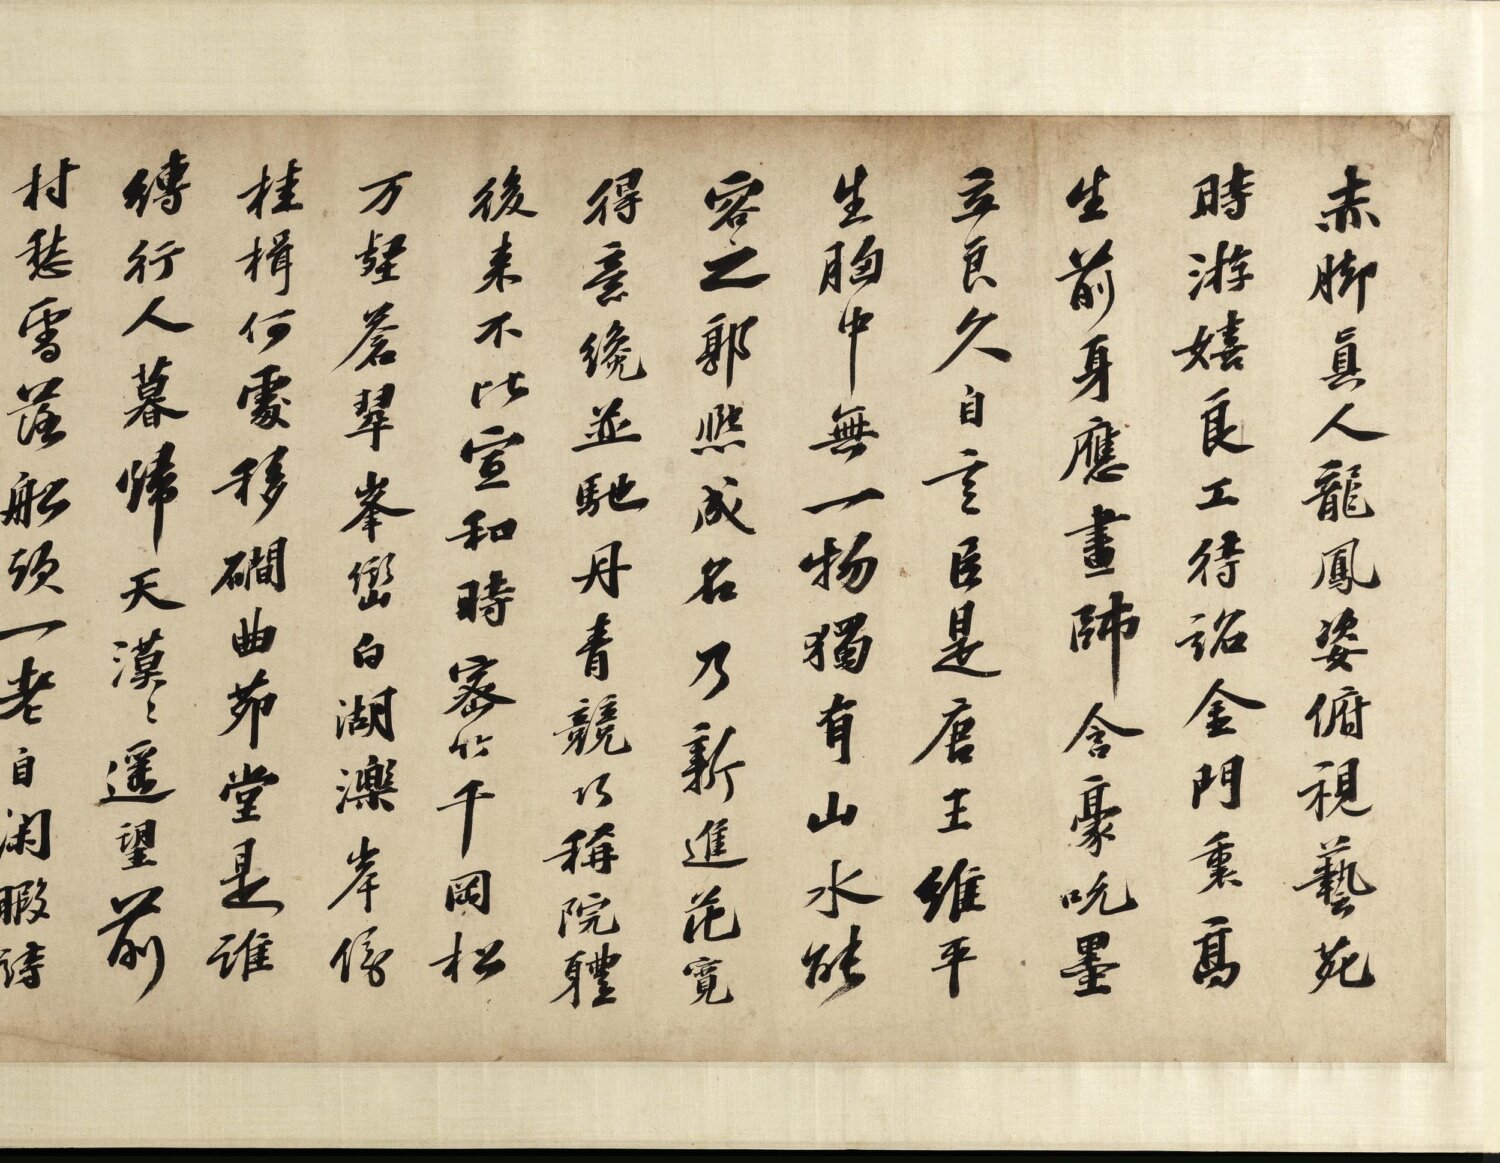 赤脚真人龍鳳姿俯視藝苑
時游嬉良工待詔金門裏高
生前身應畫師含豪吮墨
立良久自言臣是唐王維平
生胸中無一物獨有山水能
容之郭熙成名乃新進范寬
得意纔並馳丹青競巧稱院體
後来不比宣和時密竹千岡松
万壑蒼翠峯巒白湖濼岸傍
桂楫何處移磵曲茆堂是誰
縛行人暮歸天漠〻遥望前
村愁雪落船頭一老自閑暇詩